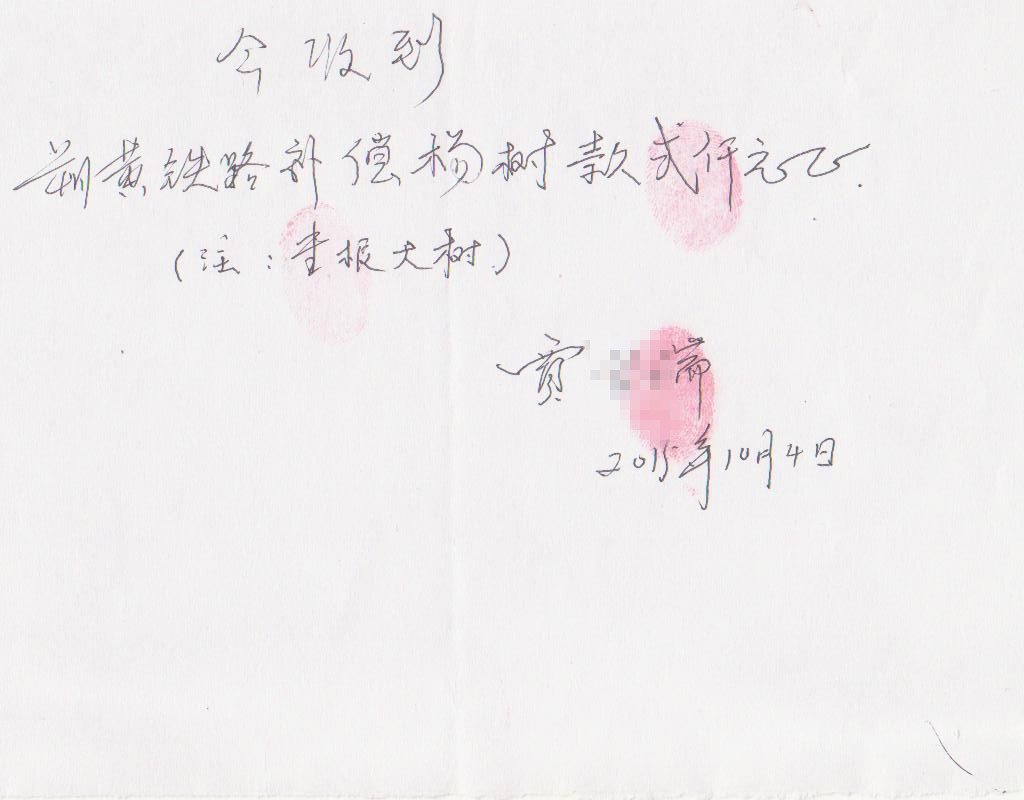 今收到
朔黄铁路补偿杨树款弍仟元正.
(注: 大树)
贾
2015年10月4日